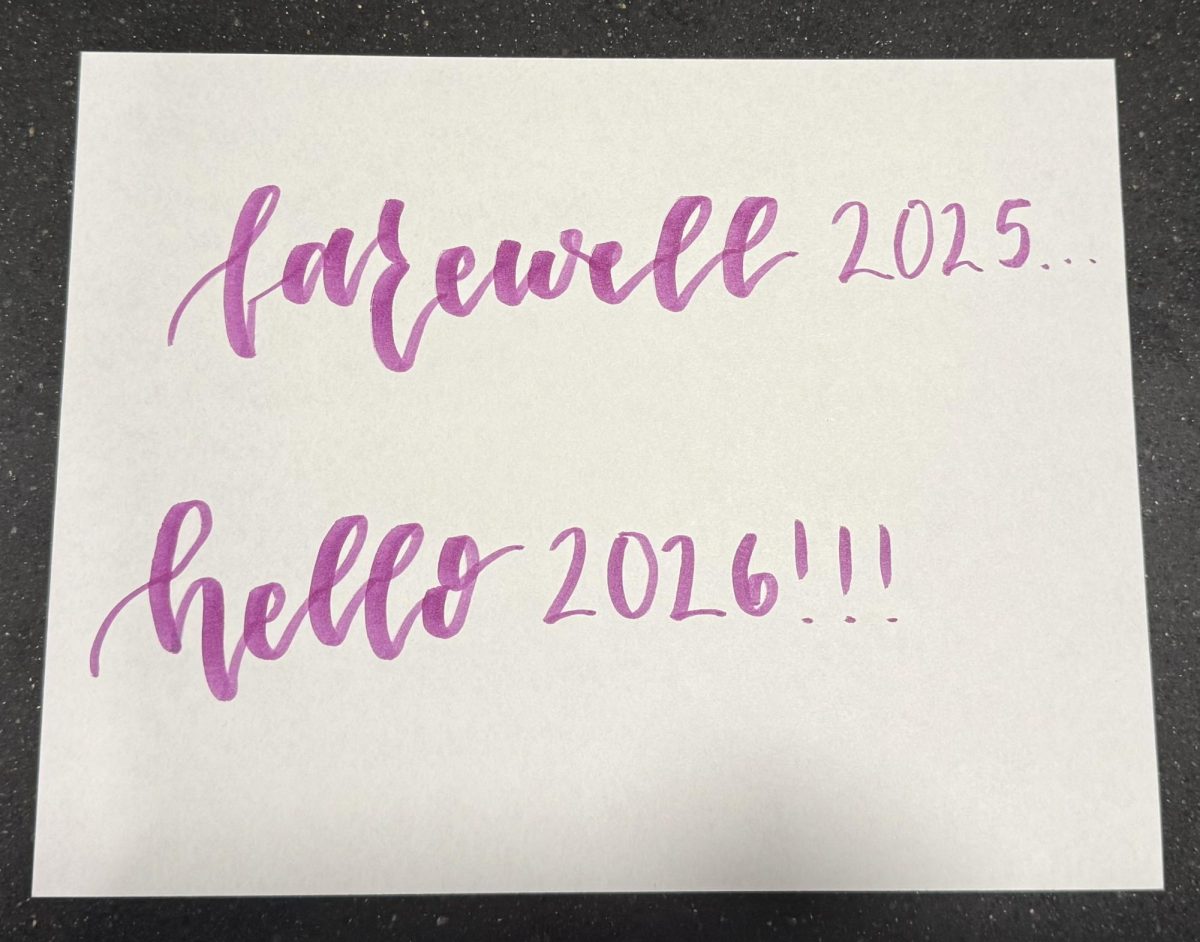 farewell 2025...
hello 2026!!!